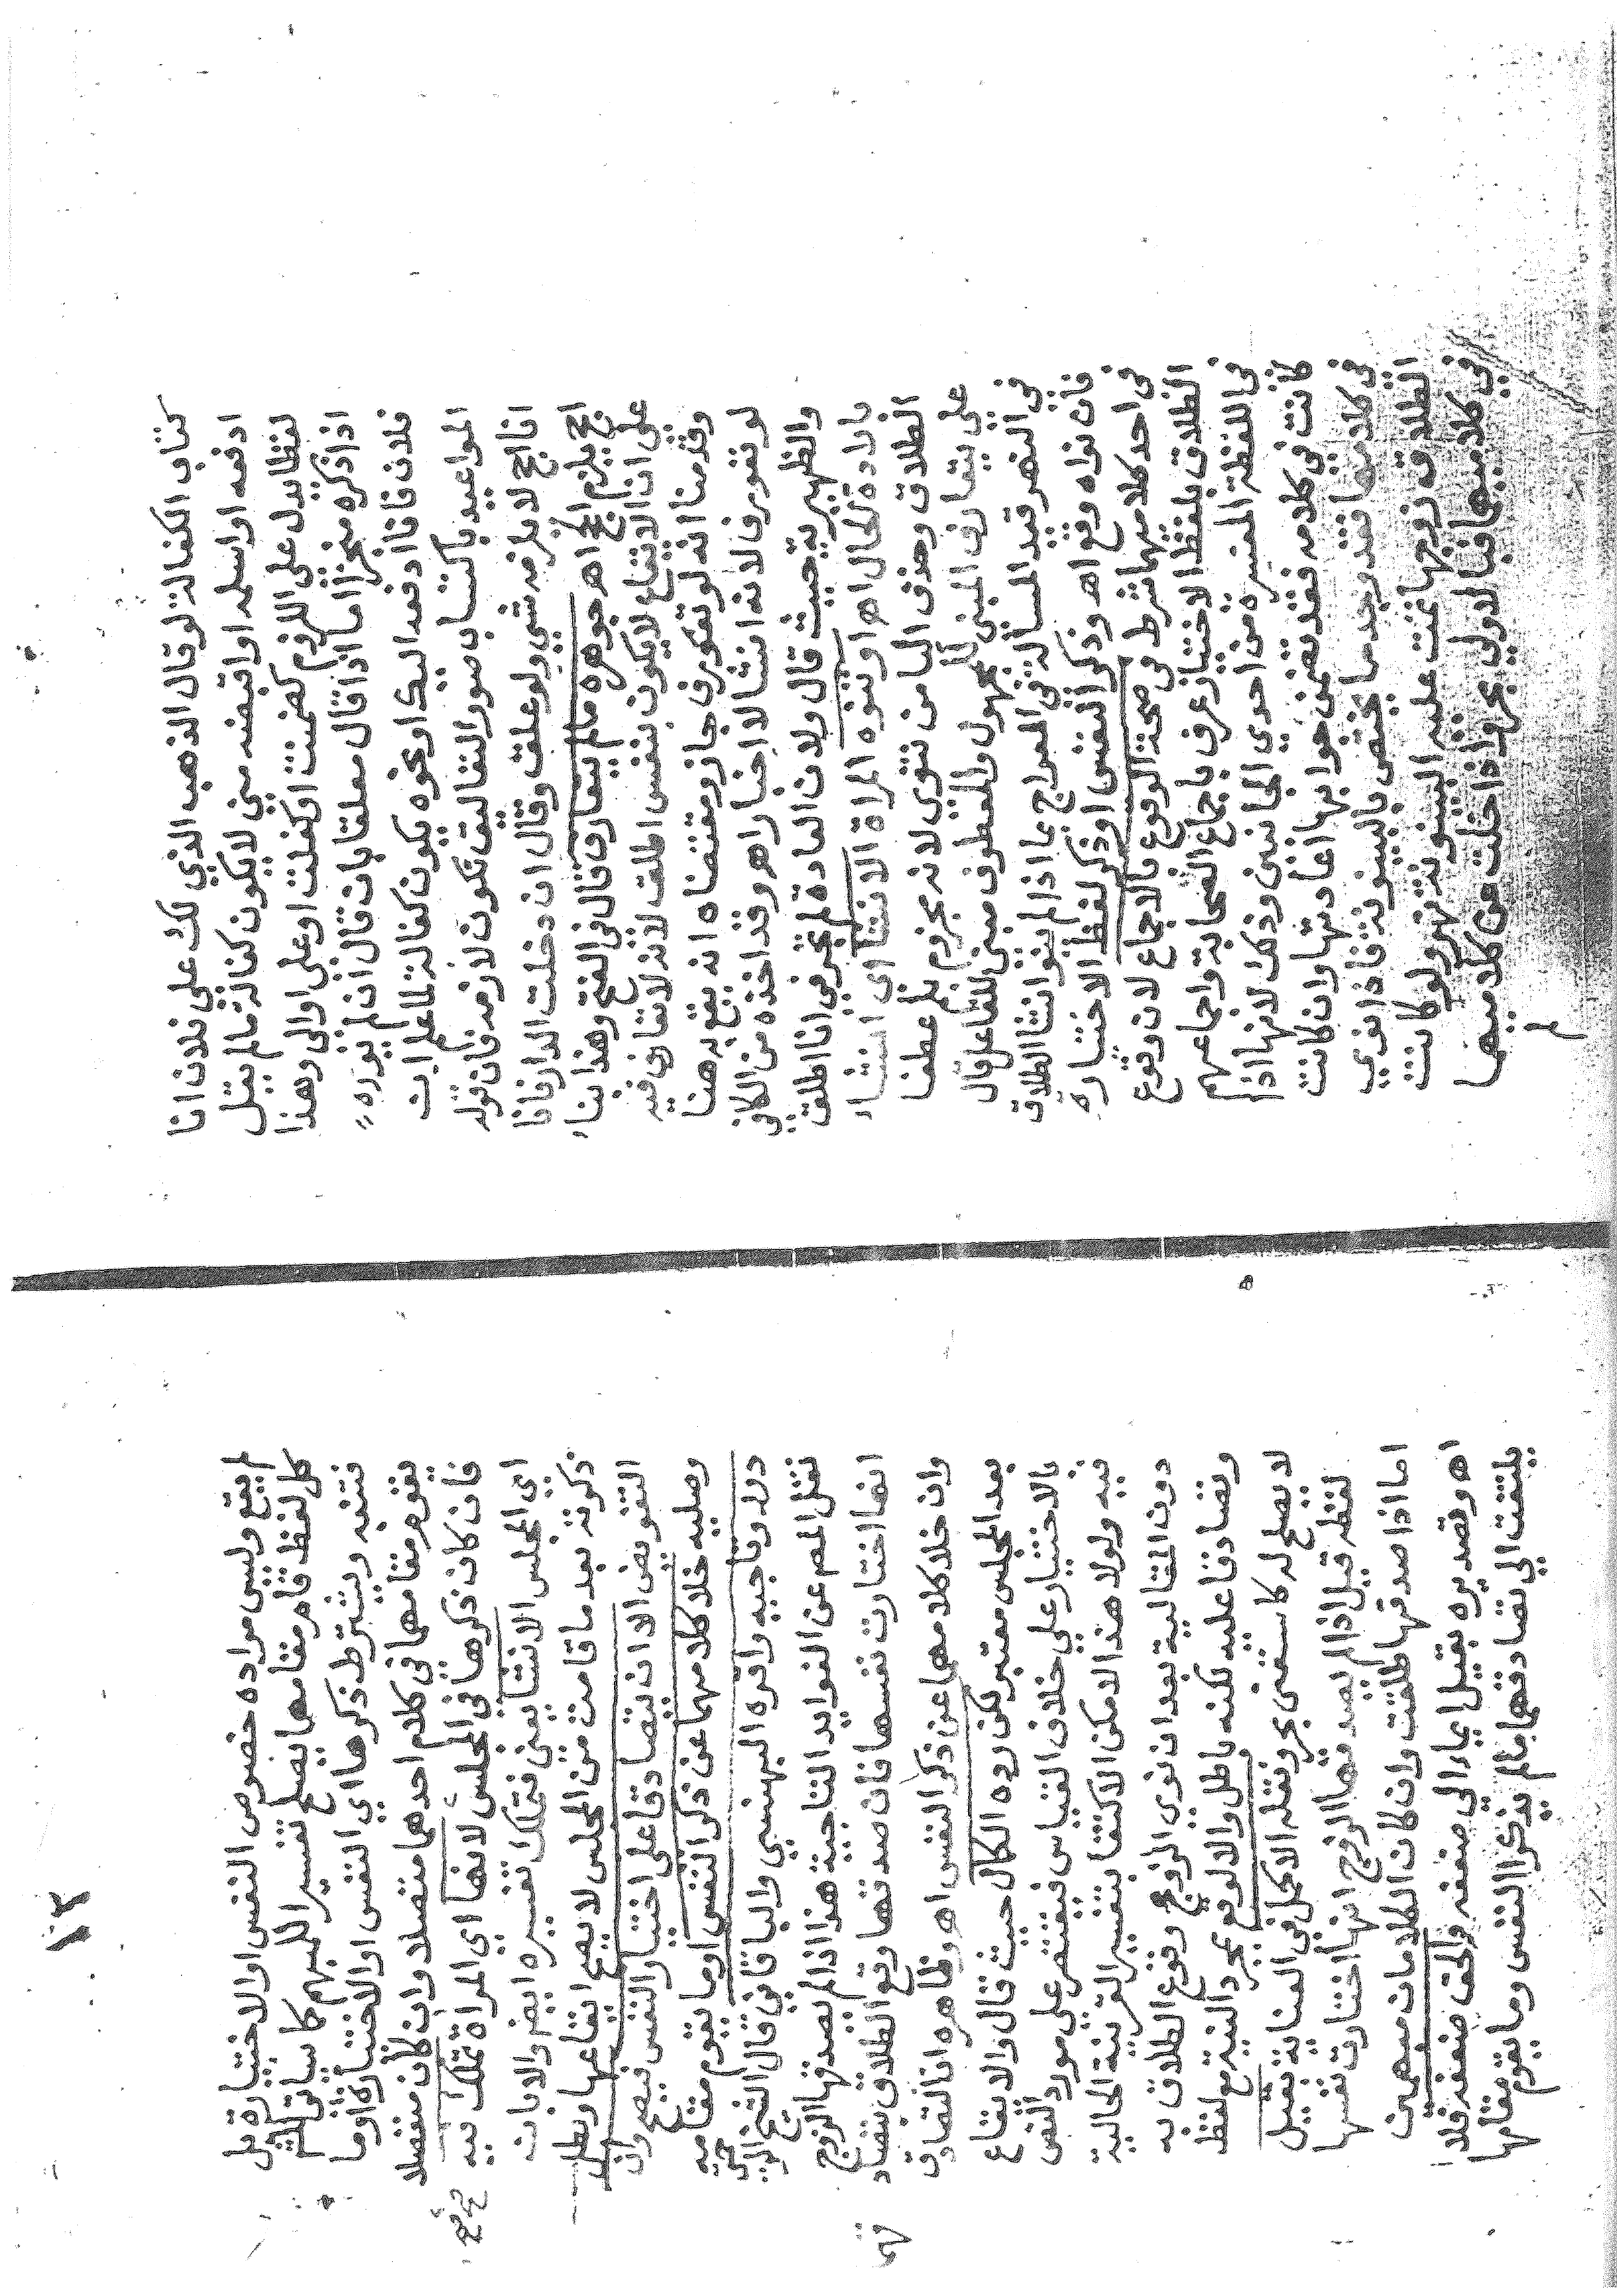 كتاب الكفالة لو قال الذهب الذي لك على فلان انا
ادفعه او اسلمه او اقبضه مني لا يكون كفالة ما لم يقل
لفظا يدل على اللزوم كضمنت او كفلت او على او الى وهذا
اذا ذكره منجزا اما اذا قال معلقا بان قال ان لم يوده
فلان فانا ادفعه اليك او نحوه يكون كفالة لما علم ان
المواعيد باكتساب صور التعاليق تكون لازمة فان قوله
انا احج لا يلزمه شي ولو علق وقال ان دخلت الدار فانا
احج يلزم الحج اهـ جوهره ما لم يتعارف قال في الفتح وهذا بناء
على ان الايقاع لا يكون بنفس اطلق لانه لا تعارف فيه
وقدمنا انه لو تعورف جاز ومقتضاه انه يقع به هنا
لو تعورف لانه انشا لا اخبار اهـ وقد اخذه من الكافي
والظهيرية حيث قال ولان العادة لم تجر في انا اطلق
بارادة الحال اهـ او تنوه المراة الانشا اي انشاء
الطلاق وحذف اليا من تنوي لانه مجزوم بلم عطفا
على يتعارف المبني للمجهول والمعطوف مبني للفاعل قال
في النهر وقيد المسالة في المعراج بما اذا لم ينو انشا الطلاق
فان نواه وقع اهـ وذكر النفس او ذكر لفظ الاختيارة
في احد كلاميهما شرط في صحة الوقوع بالاجماع لان وقوع
الطلاق بلفظ الاختيار عرف باجماع الصحابة واجماعهم
في اللفظة المفسرة من احدى الجانبين وذلك لانها اذا
كانت في كلامه فقد تضمن جوابها اعادتها وان كانت
في كلامها فقد وجد ما يختص بالبينونة فاذا نوى
الطلاق زوجها تمت علة البينونة نهر ولو كانت
في كلاميهما فبالاولى بحر واذا خلت عن كلاميهما
لم
١٢
لم يقع وليس مراده خصوص النفس او الاختيارة بل
كل لفظ قام مقامها يصلح تفسير اللمبهم كما سياتي
فتنبه ويشترط ذكرها اي النفس او الاختيارة او ما
يقوم مقامهما في كلام احدهما متصلا وان كان منفصلا
فان كان ذكرها في المجلس لانها اي المراة تملك فيه
اي المجلس الانشا يعني فتملك تفسيره ايضا والا بان
ذكرته بعد ما قامت من المجلس لا يصح ايقاعها وبطل
التفويض الا ان يتصادقا على اختيار النفس فيصح وان
وصليه خلا كلامهما عن ذكر النفس او ما يقوم مقامه
درر وتاجيه واقره البهنسي والباقاني قال الشيخ
نقل المصر عن الفوايد التاجية هذا اذا لم يصدقها الزوج
انها اختارت نفسها فان صدقها وقع الطلاق بتصاد
وان خلا كلامهما عن ذكر النفس اهـ وظاهره ان التصادق
بعد المجلس معتبر لكن رده الكمال حيث قال والايقاع
بالاختيار على خلاف القياس فيقتصر على مورد النص
فيه ولولا هذا لامكن الاكتفا بتفسير القرينة الحالية
دون المقالية بعد ان نوى الزوج وقوع الطلاق به
وتصادقا عليه لكنه باطل والا لوقع بمجرد النية مع لفظ
لا يصلح له كاسقني بحر ونقله الاكمل في العناية بقيل
لفظه قيل اذا لم يصدقها الزوج انها اختارت نفسها
اما اذا صدقها طلقت وان كان الكلامان مبهمين
اهـ وتصديره بقيل ايماء الى ضعفه والحق ضعفه فلا
يلتفت الى تصادقهما ما لم يذكرا النفس وما يقوم مقامها